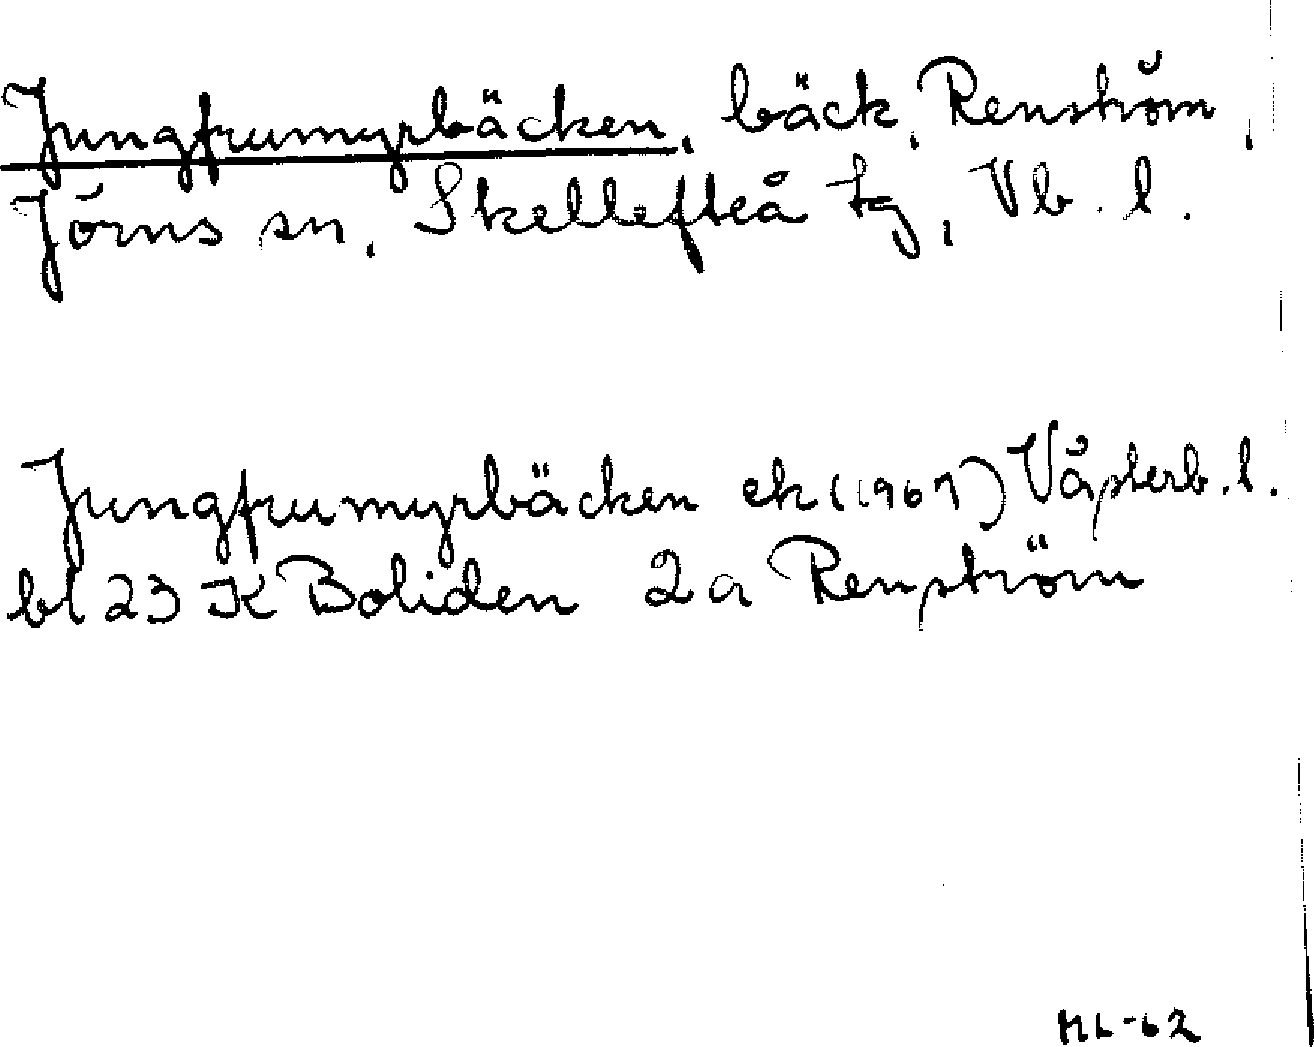 Jungfrumyrbäcken, bäck, Renström,
Jörns sn, Skellefteå tg, Vb. l.
Jungfrumyrbäcken ek (1967) Västerb. l.
bl 23 K Boliden 2a Renström